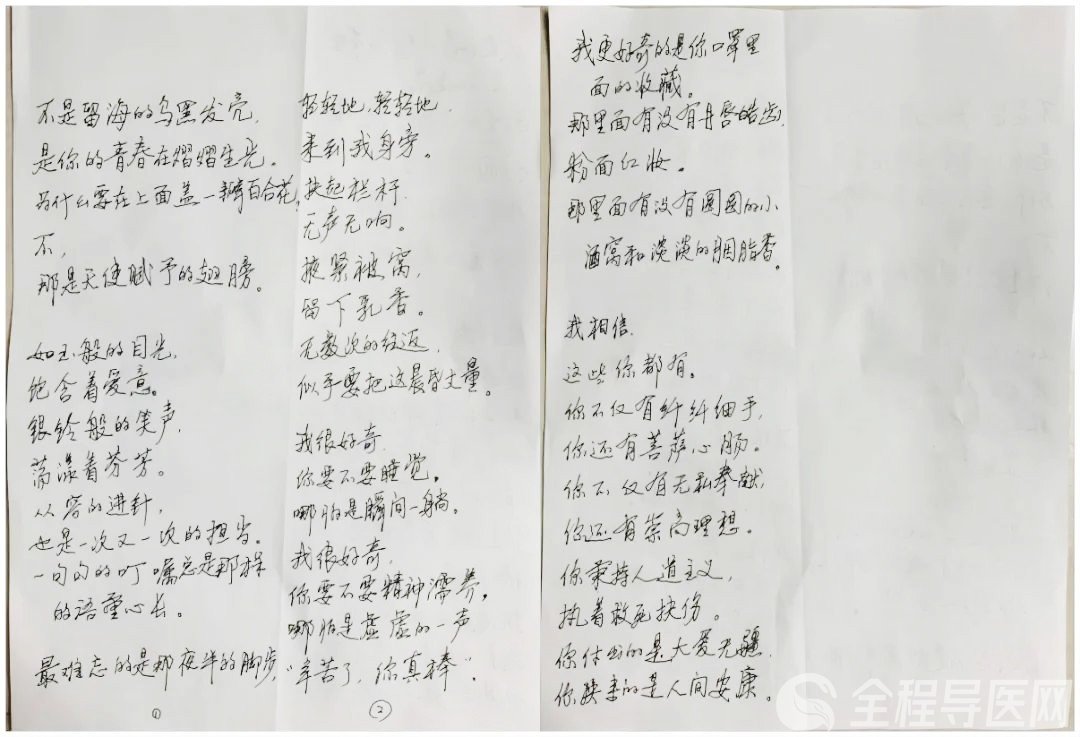 不是留海的乌黑发亮,
是你的青春在熠熠生光。
为什么要在上面盖一瓣百合花,
不,
那是天使赋予的翅膀。
如玉般的目光,
饱含着爱意。
银铃般的笑声,
荡漾着芬芳。
从容的进针,
也是一次又一次的担当。
一句句的叮嘱总是那样
的语重心长。
最难忘的是那夜半的脚步,
①
轻轻地,轻轻地,
来到我身旁。
扶起栏杆
无声无响。
掖紧被窝,
留下乳香。
无数次的往返,
似乎要把这晨昏丈量。
我很好奇
你要不要睡觉,
哪怕是瞬间一躺。
我很好奇,
你要不要精神濡养,
哪怕是虚虚的一声
"辛苦了,你真棒"。
②
我更好奇的是你口罩里
面的收藏。
那里面有没有丹唇皓齿,
粉面红妆。
那里面有没有圆圆的小
酒窝和淡淡的胭脂香。
我相信,
这些你都有。
你不仅有纤纤细手,
你还有菩萨心肠。
你不仅有无私奉献,
你还有崇高理想。
你秉持人道主义,
执着救死扶伤。
你付出的是大爱无疆,
你换来的是人间安康。
全程导医网